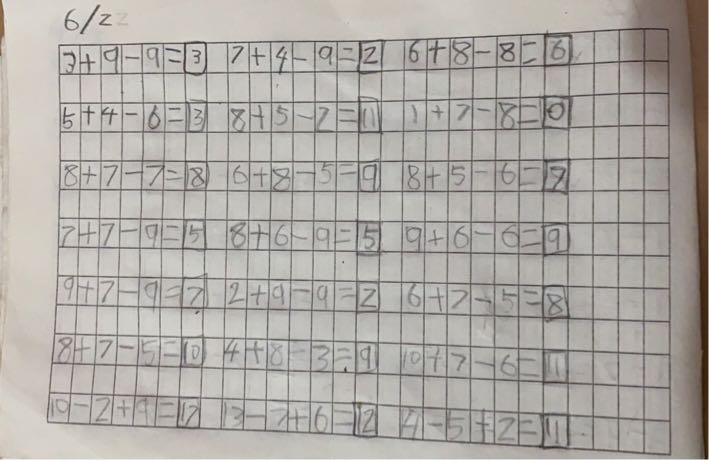 6/22
3+9-9=3 7+4-9=2 6+8-8=6
5+4-6=3 8+5-2=11 1+7-8=0
8+7-7=8 6+8-5=9 8+5-6=7
7+7-9=5 8+6-9=5 9+6-6=9
9+7-9=7 2+9-9=2 6+7-5=8
8+7-5=10 4+8-3=9 10+7-6=11
10-2+9=17 13-7+6=12 4-5+2=11